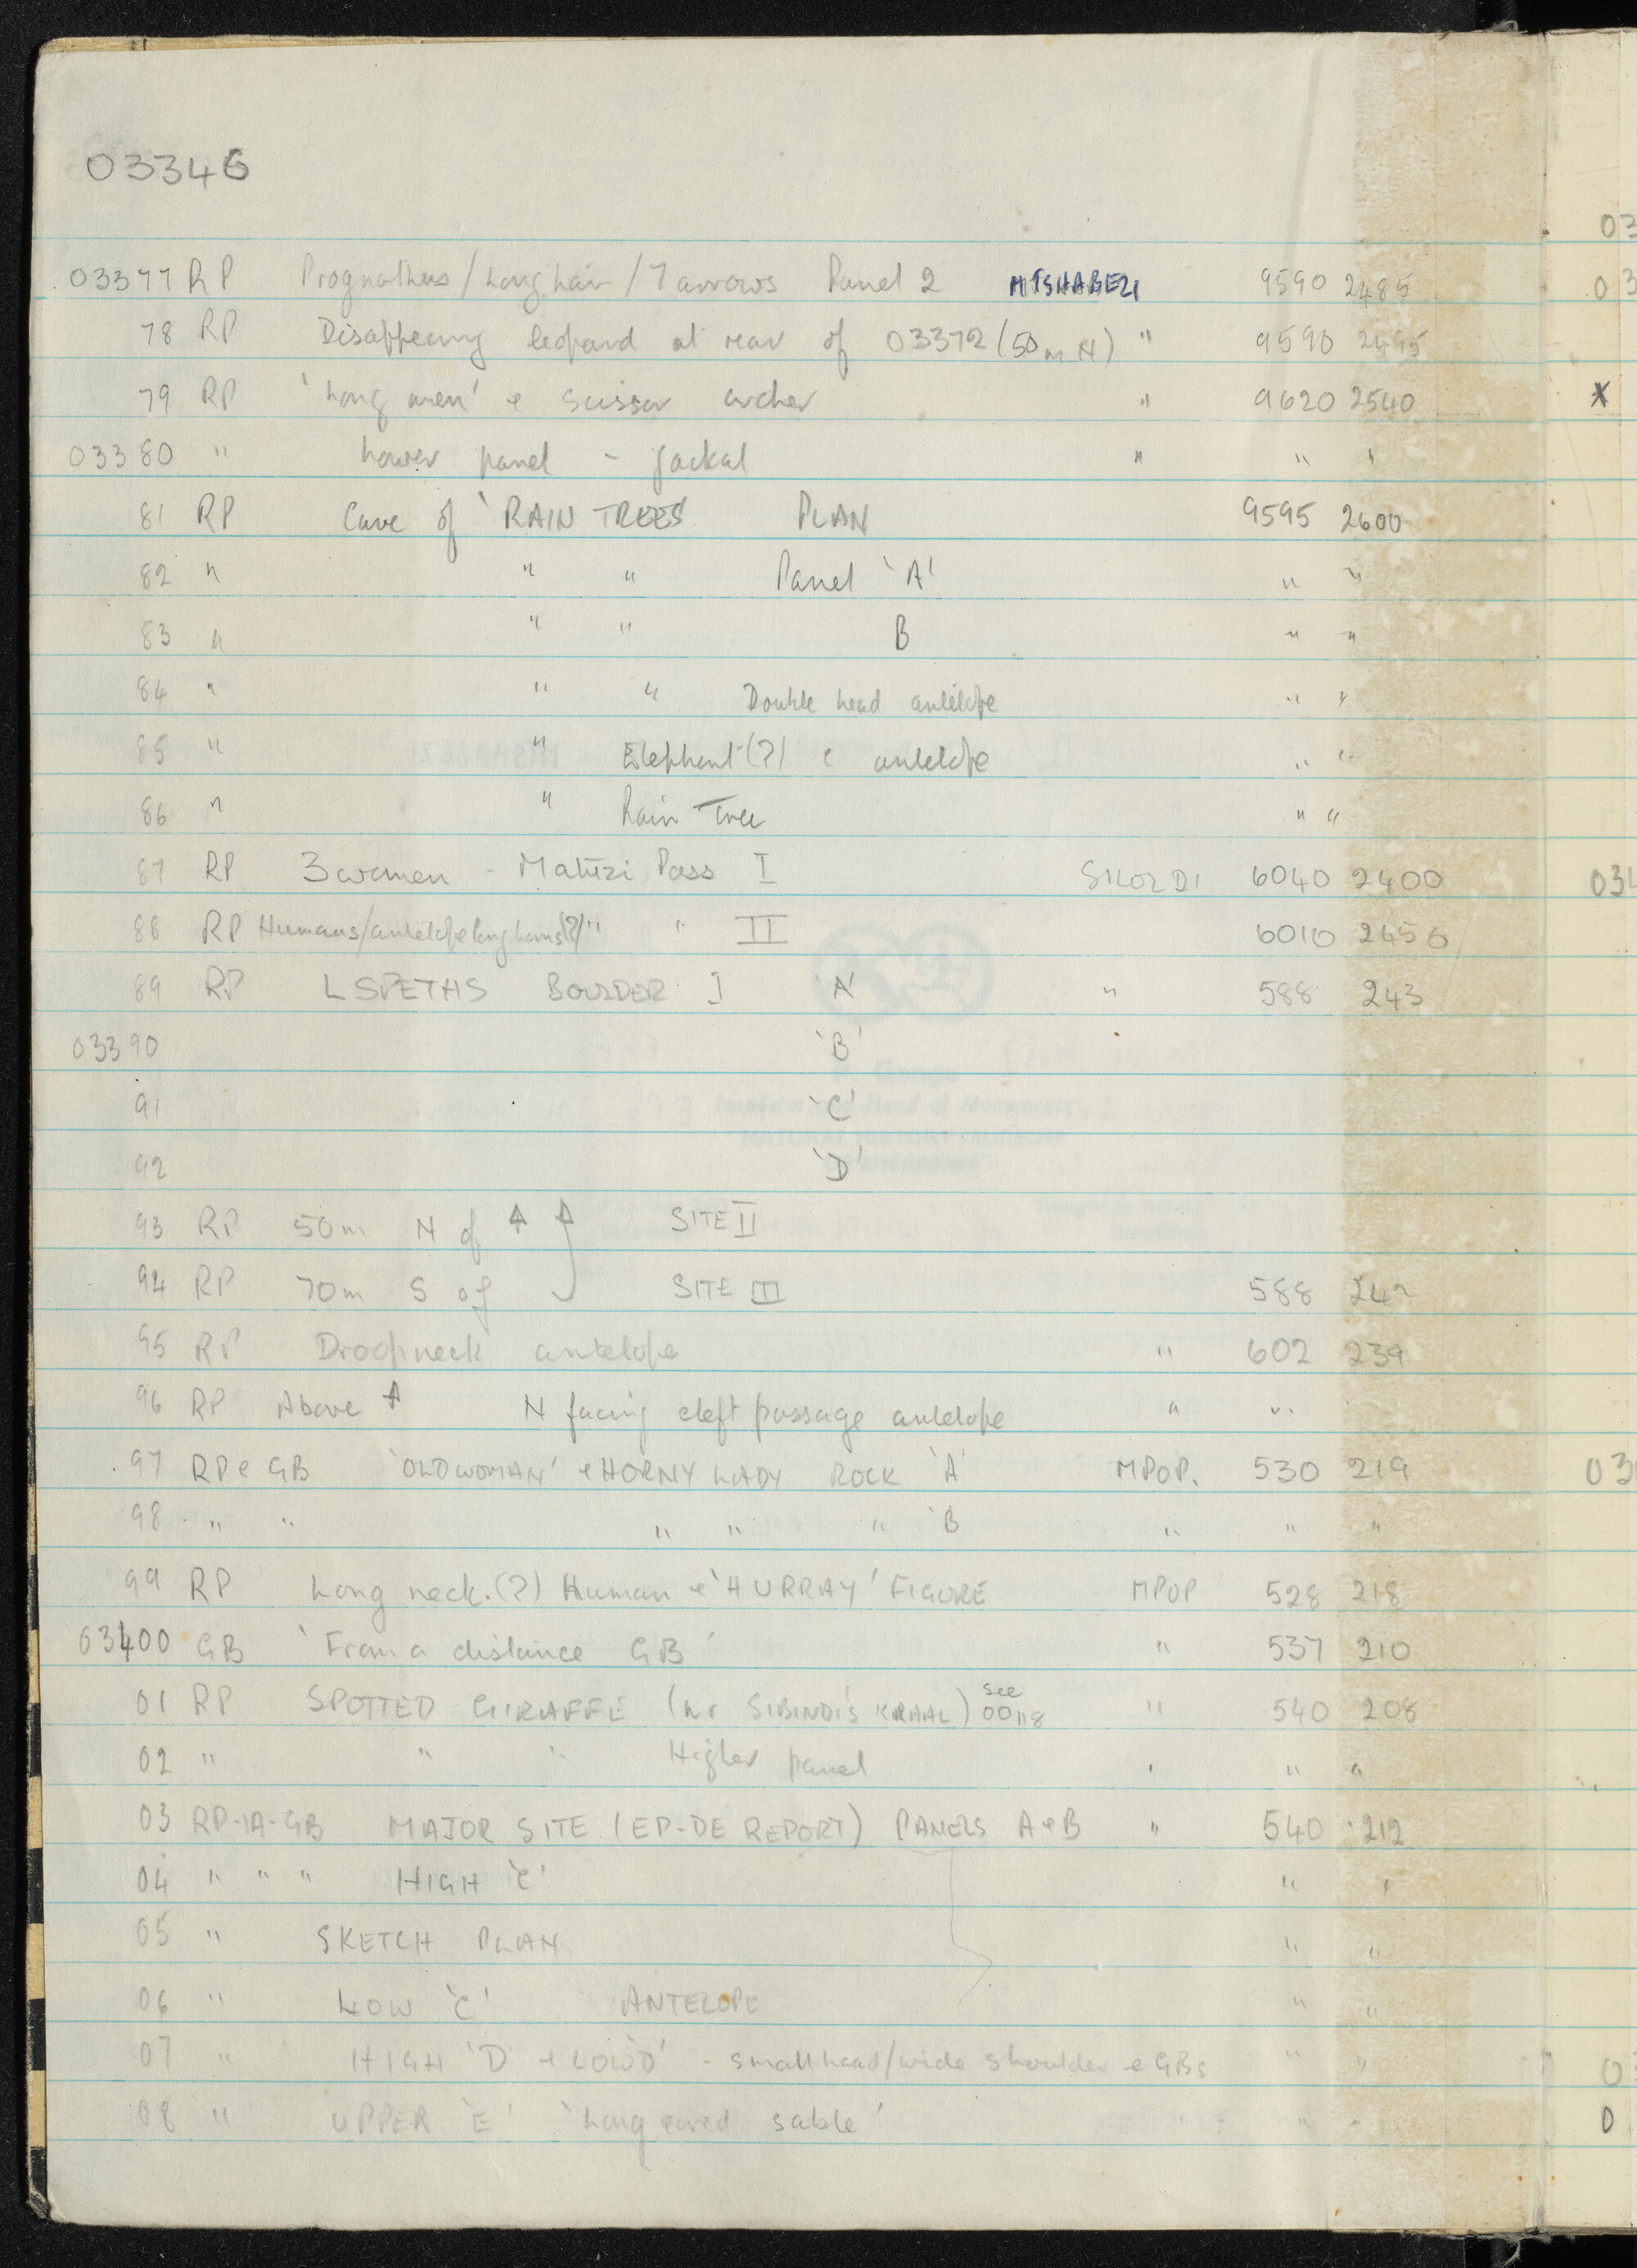 03346
03377 RP Prognathous / Long hair / 7 arrows Panel 2 MTSHABEZI 9590 2485
78 RP Disappearing leopard at rear of 03372 (50m N) " 9590 2495
79 RP 'Long men' & scissor archer " 9620 2540
03380 " Lower panel - jackal " " "
81 RP Cave of 'RAIN TREES' PLAN 9595 2600
82 " " " Panel 'A' " "
83 " " " B " "
84 " " " Double head antelope " "
85 " " Elephant (?) & antelope " "
86 " " Rain Tree " "
87 RP 3 women - Matizi Pass I SILOZDI 6040 2400
88 RP Humans/antelope long horns(?)/" " II 6010 2450
89 RP LSPETHS BOULDER I 'A' " 588 243
03390 'B'
91 'C'
92 'D'
93 RP 50m N of ↑ ↑ SITE II
94 RP 70m S of SITE III 588 242
95 RP Droopneck antelope " 602 239
96 RP Above ↑ N facing cleft passage antelope " "
97 RP & GB 'OLD WOMAN' & HORNY LADY ROCK 'A' MPOP. 530 219
98 " " " " " 'B " " "
99 RP Long neck. (?) Human & 'HURRAY' FIGURE MPOP 528 218
03400 GB 'From a distance GB' " 537 210
01 RP SPOTTED GIRAFFE (nr SIBINDI'S KRAAL) see 00118 " 540 208
02 " " " Higher panel " " "
03 RP-IA-GB MAJOR SITE (EP-DE REPORT) PANELS A & B " 540 212
04 " " " HIGH 'C' " "
05 " SKETCH PLAN " "
06 " LOW 'C' ANTELOPE " "
07 " HIGH 'D & LOW 'D' - small head/wide shoulder & GBs " "
08 " UPPER 'E' 'Long eared sable' " "